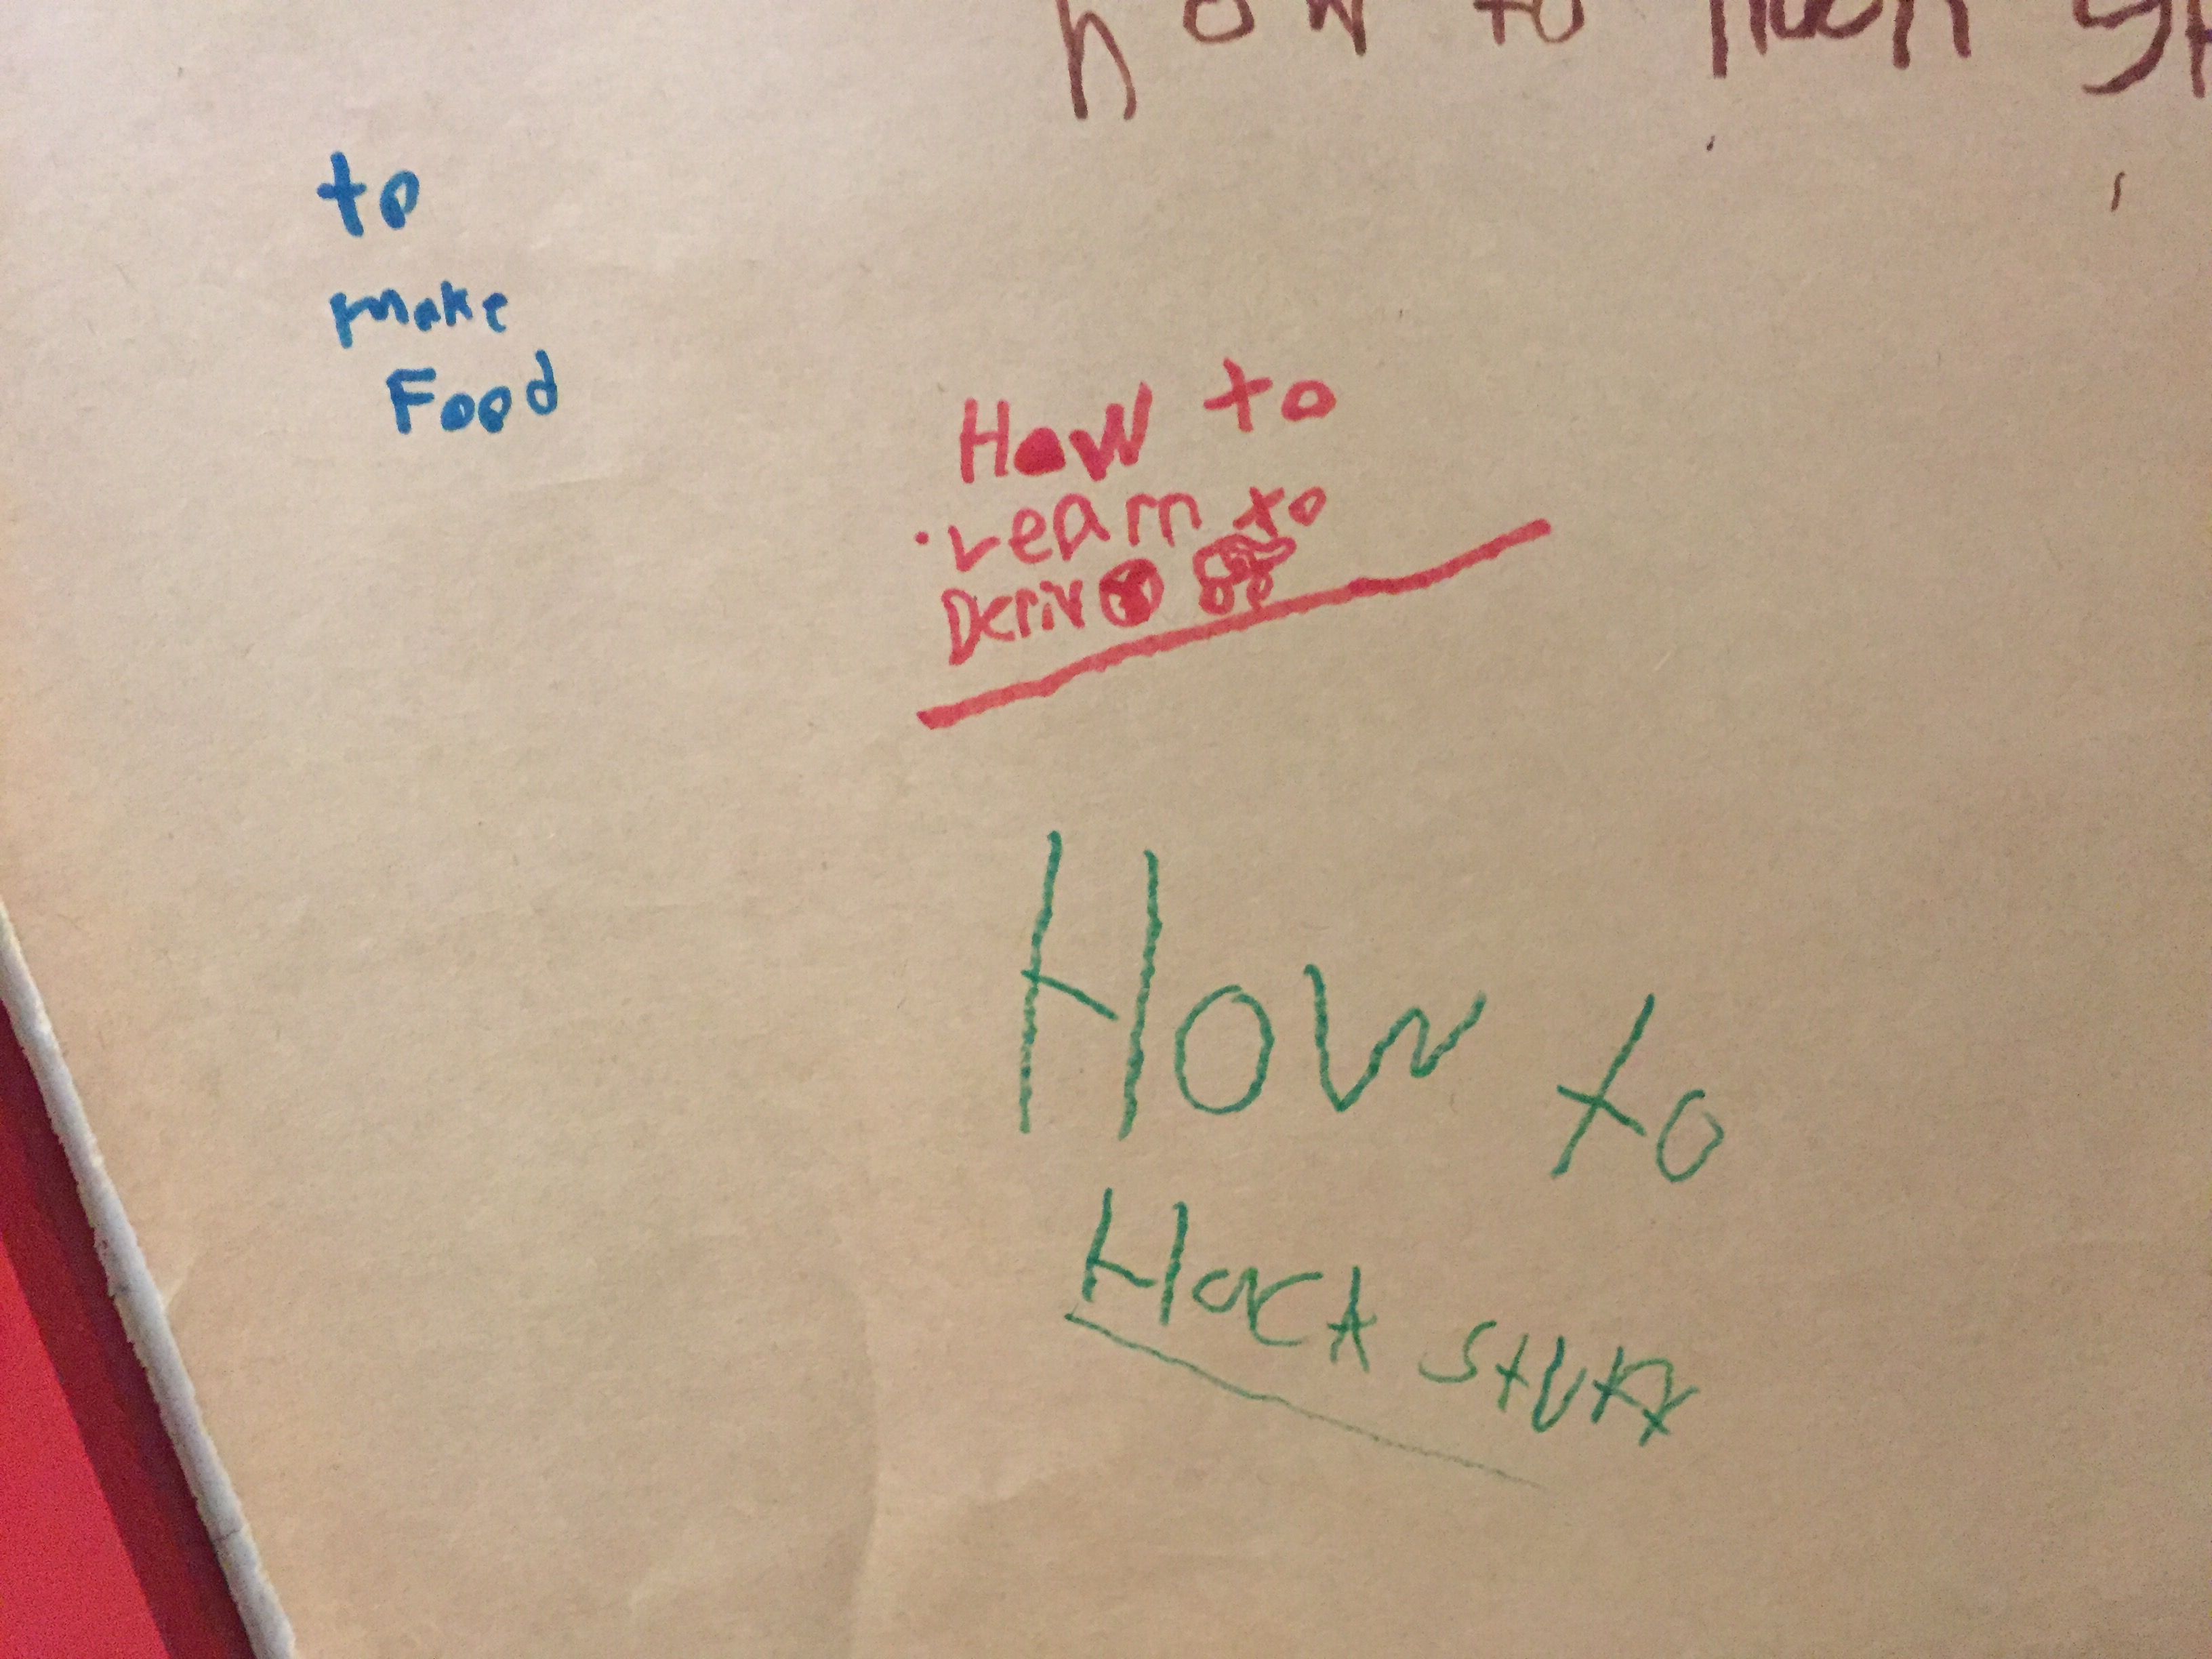 how to
to
make
Food
How to
Learn to
Deriv
How to
Hack stuff